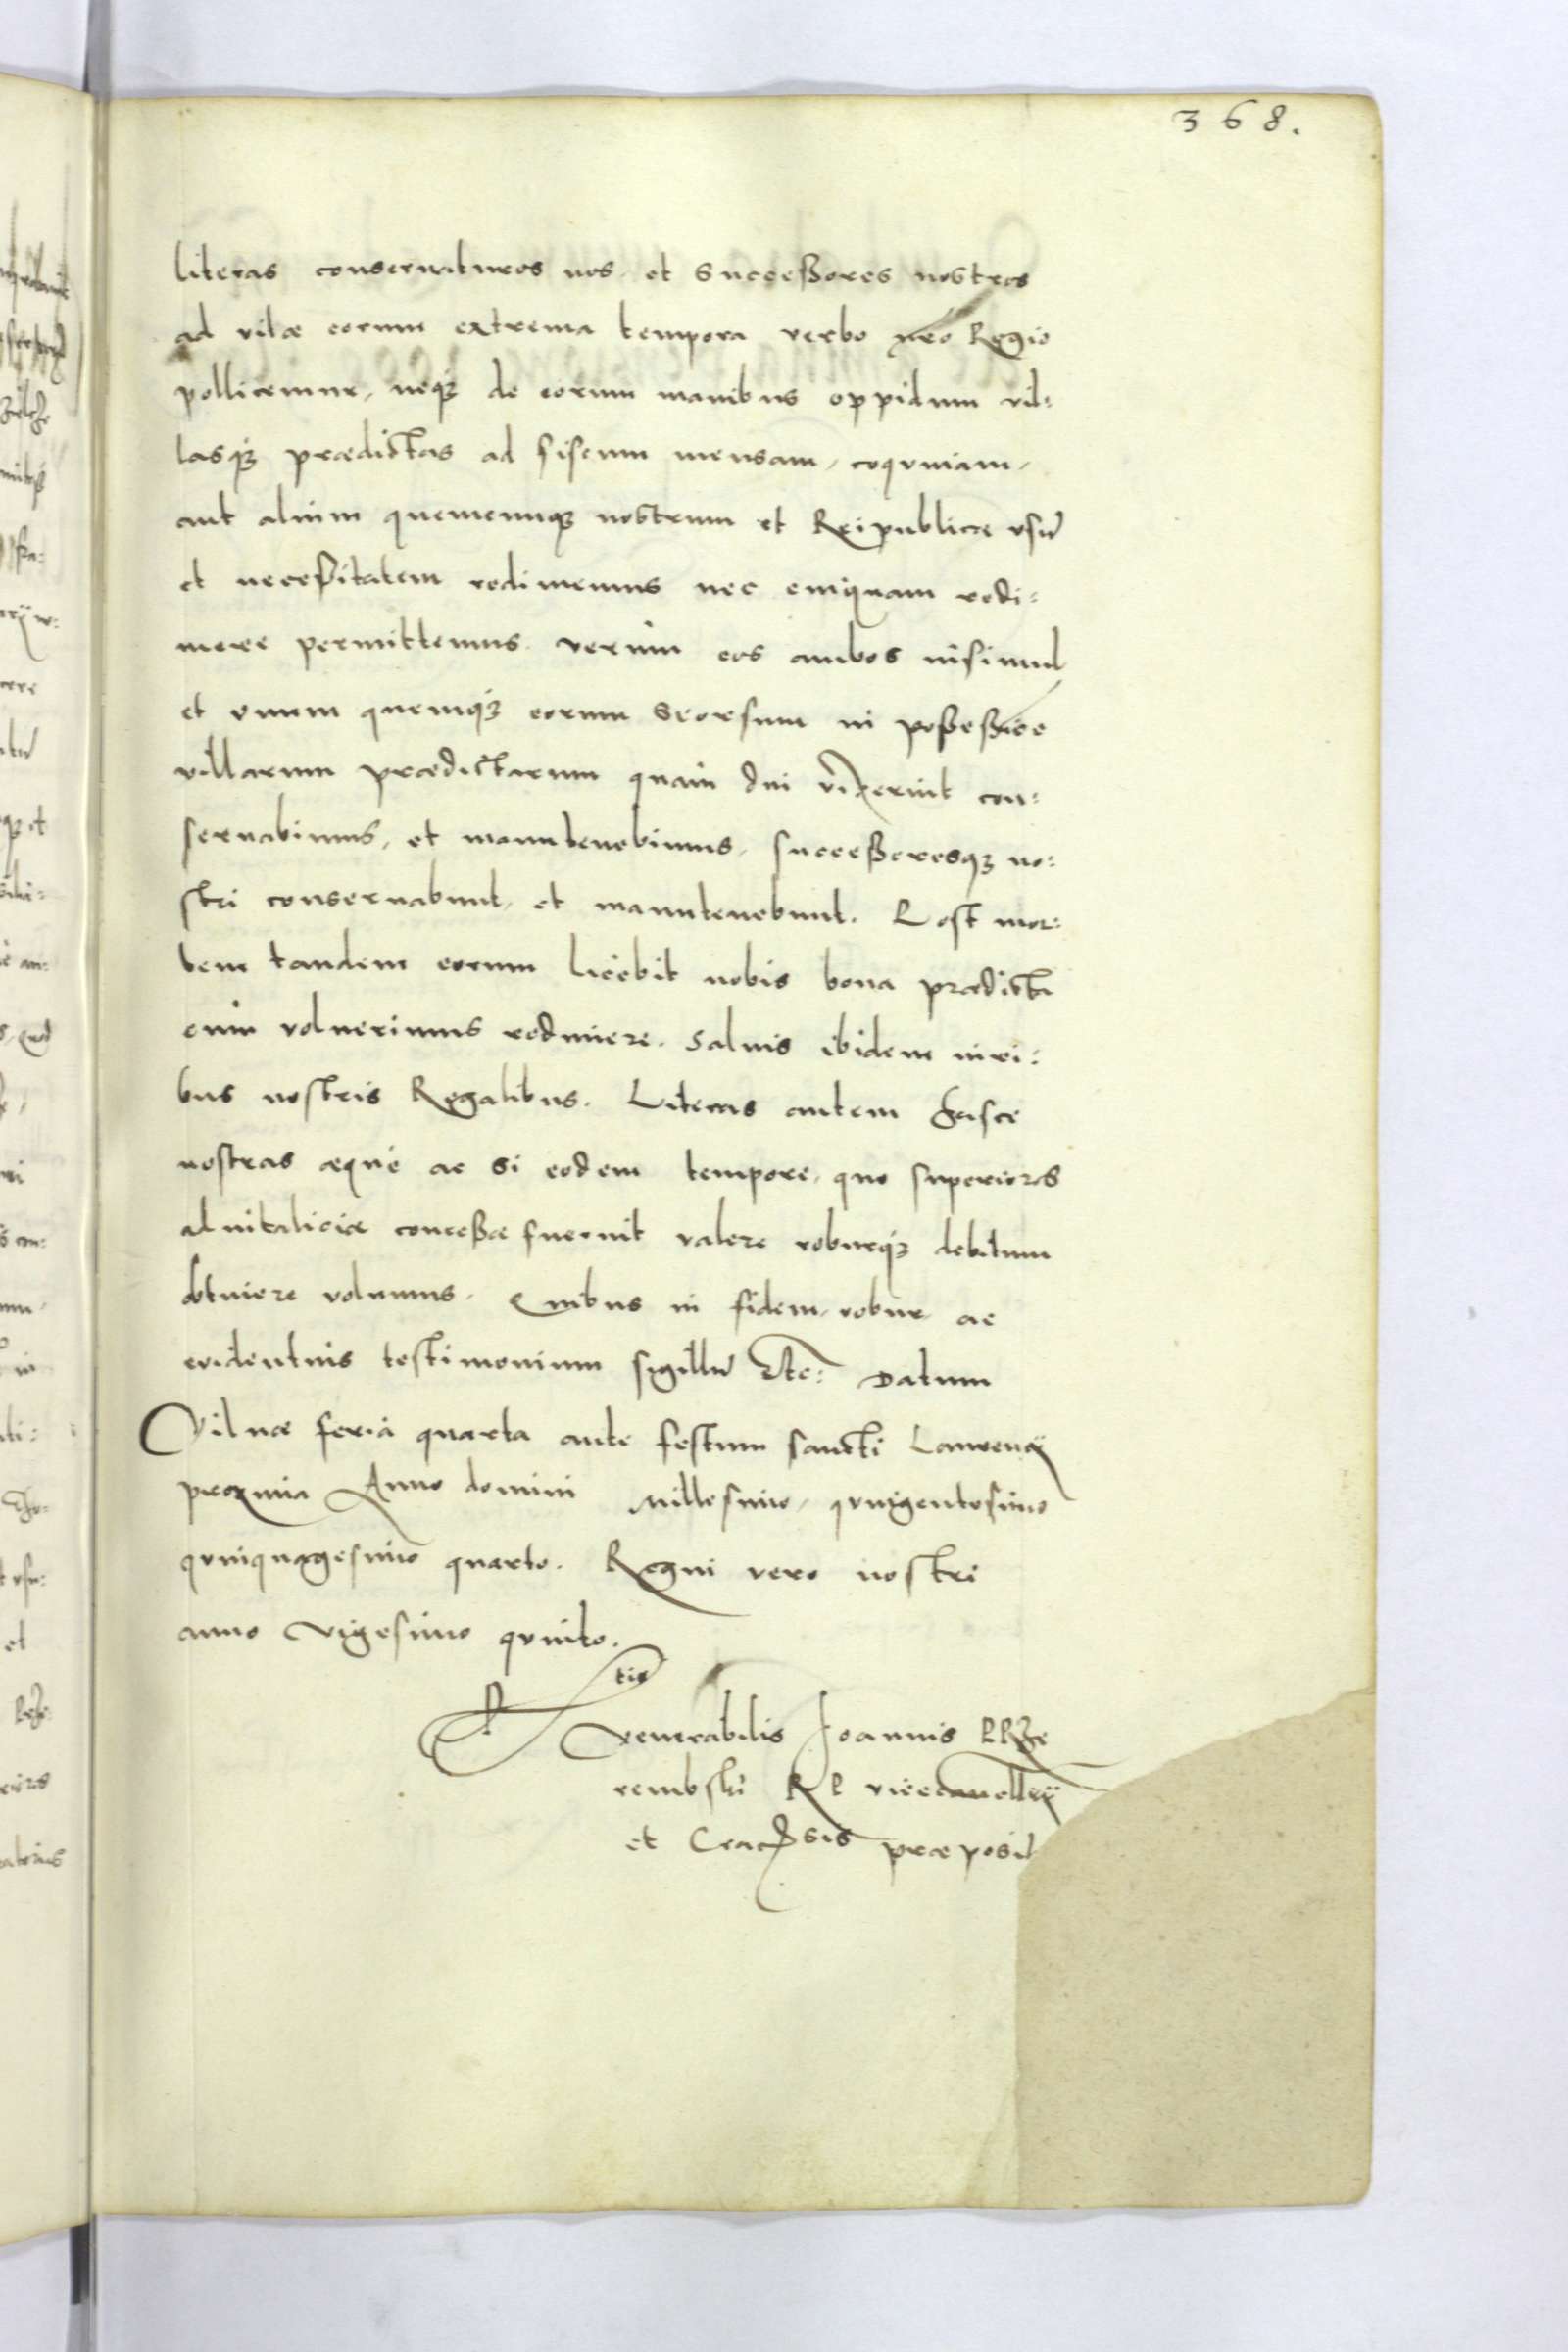 368.
literas conseruituros nos et Succeßores nostros
ad vitæ eorum extrema tempora verbo nr̃o Regio
pollicemur, neqꝫ de eorum manibus oppidum vil:
lasqꝫ prædictas ad fiscum mensam, coquinam,
aut alium quemcunqꝫ nostrum et Reipublicæ vsũ
et neceßitatem redimemus nec cuiquam redi:
mere permittemus. verum eos ambos insimul
et vnum quemqꝫ eorum Seorsum in poßeßiõe
villarum prædictarum quam diu vixerint con:
seruabimus, et manutenebimus, succeßoresqꝫ no:
stri conseruabunt, et manutenebunt. Post mor:
tem tandem eorum licebit nobis bona prædicta
cum voluerimus redimere. Saluis ibidem iuri:
bus nostris Regalibus. Literas autem hasce
nostras æque ac si eodem tempore, quo superiores
aduitaliciæ conceßæ fuerint valere roburqꝫ debitum
obtinere volumus. Quibus in fidem, robur ac
euidentius testimonium sigillũ etc: Datum
Vilnæ feria quarta ante festum sancti Laurencÿ
proxima Anno domini Millesimo, quingentesimo
quinquagesimo quarto. Regni vero nostri
anno vigesimo quinto.
R tio
venerabilis Joannis PRZe
rembski R P vicecancellarÿ
et Crac̃sis præposit